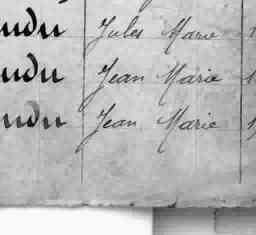 udu Jules Marie 1
udu Jean Marie 1
udu Jean Marie 1